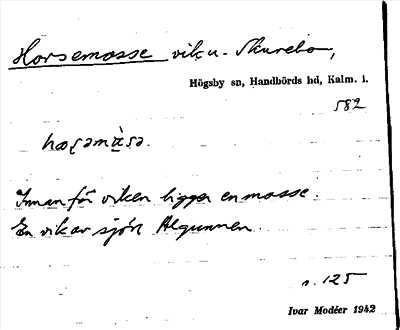 Horsemosse vik, u. Skurebo,
Högsby sn, Handbörds hd, Kalm. l.
582
Innanför viken ligger en mosse.
En vik av sjön Algunnen.
s. 125
Ivar Modéer 1942